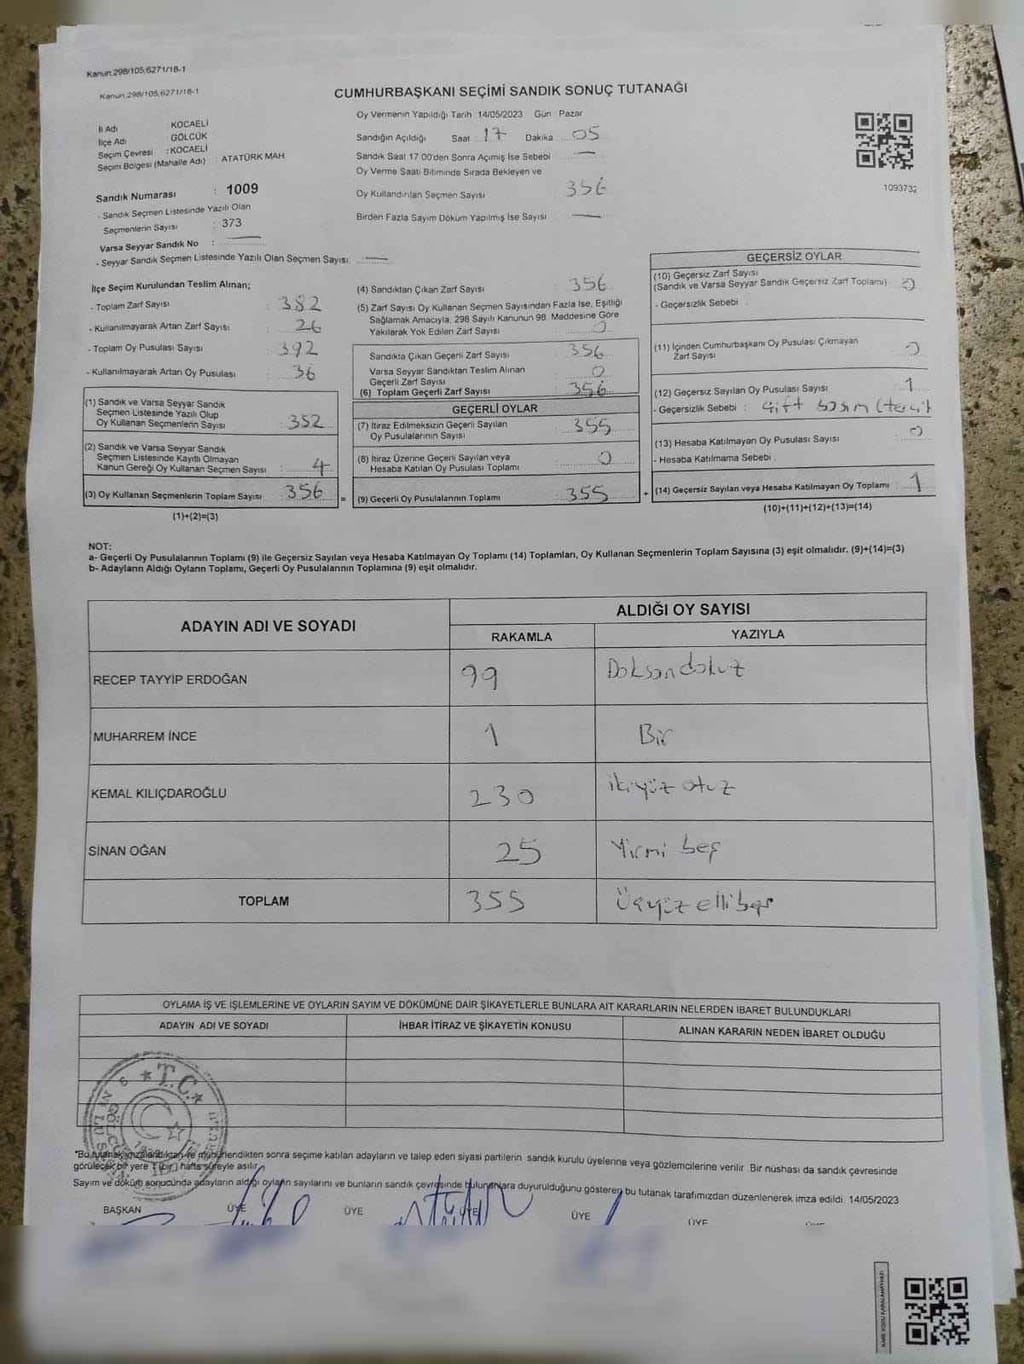 Kanun:298/105,6271/18-1
Kanun:298/105,6271/18-1
CUMHURBAŞKANI SEÇİMİ SANDIK SONUÇ TUTANAĞI
İl Adı : KOCAELİ
İlçe Adı : GÖLCÜK
Seçim Çevresi : KOCAELİ
Seçim Bölgesi (Mahalle Adı) : ATATÜRK MAH
Sandık Numarası : 1009
- Sandık Seçmen Listesinde Yazılı Olan
Seçmenlerin Sayısı : 373
Varsa Seyyar Sandık No :
- Seyyar Sandık Seçmen Listesinde Yazılı Olan Seçmen Sayısı :
Oy Vermenin Yapıldığı Tarih 14/05/2023 Gün Pazar
Sandığın Açıldığı Saat 17 Dakika 05
Sandık Saat 17 00'den Sonra Açımış İse Sebebi
Oy Verme Saati Bitiminde Sırada Bekleyen ve
Oy Kullandırılan Seçmen Sayısı 356
Birden Fazla Sayım Döküm Yapılmış İse Sayısı
1093732
İlçe Seçim Kurulundan Teslim Alınan;
- Toplam Zarf Sayısı : 382
- Kullanılmayarak Artan Zarf Sayısı : 26
- Toplam Oy Pusulası Sayısı : 392
- Kullanılmayarak Artan Oy Pusulası : 36
(1) Sandık ve Varsa Seyyar Sandık
Seçmen Listesinde Yazılı Olup
Oy Kullanan Seçmenlerin Sayısı : 352
(2) Sandık ve Varsa Seyyar Sandık
Seçmen Listesinde Kayıtlı Olmayan
Kanun Gereği Oy Kullanan Seçmen Sayısı : 4
(3) Oy Kullanan Seçmenlerin Toplam Sayısı : 356
(1)+(2)=(3)
=
(4) Sandıktan Çıkan Zarf Sayısı : 356
(5) Zarf Sayısı Oy Kullanan Seçmen Sayısından Fazla İse, Eşitliği
Sağlamak Amacıyla, 298 Sayılı Kanunun 98. Maddesine Göre
Yakılarak Yok Edilen Zarf Sayısı : 0
Sandıkta Çıkan Geçerli Zarf Sayısı : 356
Varsa Seyyar Sandıktan Teslim Alınan
Geçerli Zarf Sayısı : 0
(6) Toplam Geçerli Zarf Sayısı : 356
GEÇERLİ OYLAR
(7) İtiraz Edilmeksizin Geçerli Sayılan
Oy Pusulalarının Sayısı : 355
(8) İtiraz Üzerine Geçerli Sayılan veya
Hesaba Katılan Oy Pusulası Toplamı : 0
(9) Geçerli Oy Pusulalarının Toplamı : 355
+
GEÇERSİZ OYLAR
(10) Geçersiz Zarf Sayısı
(Sandık ve Varsa Seyyar Sandık Geçersiz Zarf Toplamı) : 0
- Geçersizlik Sebebi :
(11) İçinden Cumhurbaşkanı Oy Pusulası Çıkmayan
Zarf Sayısı : 0
(12) Geçersiz Sayılan Oy Pusulası Sayısı : 1
- Geçersizlik Sebebi : Çift basım (tercih
(13) Hesaba Katılmayan Oy Pusulası Sayısı : 0
- Hesaba Katılmama Sebebi :
(14) Geçersiz Sayılan veya Hesaba Katılmayan Oy Toplamı : 1
(10)+(11)+(12)+(13)=(14)
NOT:
a- Geçerli Oy Pusulalarının Toplamı (9) ile Geçersiz Sayılan veya Hesaba Katılmayan Oy Toplamı (14) Toplamları, Oy Kullanan Seçmenlerin Toplam Sayısına (3) eşit olmalıdır. (9)+(14)=(3)
b- Adayların Aldığı Oyların Toplamı, Geçerli Oy Pusulalarının Toplamına (9) eşit olmalıdır.
ADAYIN ADI VE SOYADI ALDIĞI OY SAYISI
RAKAMLA YAZIYLA
RECEP TAYYİP ERDOĞAN 99 Doksandokuz
MUHARREM İNCE 1 Bir
KEMAL KILIÇDAROĞLU 230 ikiyüz otuz
SİNAN OĞAN 25 Yirmi beş
TOPLAM 355 Üçyüz elli beş
OYLAMA İŞ VE İŞLEMLERİNE VE OYLARIN SAYIM VE DÖKÜMÜNE DAİR ŞİKAYETLERLE BUNLARA AİT KARARLARIN NELERDEN İBARET BULUNDUKLARI
ADAYIN ADI VE SOYADI İHBAR İTİRAZ VE ŞİKAYETİN KONUSU ALINAN KARARIN NEDEN İBARET OLDUĞU
T.C.
*Bu tutanak imzalandıktan ve mühürlendikten sonra seçime katılan adayların ve talep eden siyasi partilerin sandık kurulu üyelerine veya gözlemcilerine verilir Bir nüshası da sandık çevresinde
görülecek bir yere 1 (bir) hafta süreyle asılır
Sayım ve döküm sonucunda adayların aldığı oyların sayılarını ve bunların sandık çevresinde bulunanlara duyurulduğunu gösteren bu tutanak tarafımızdan düzenlenerek imza edildi. 14/05/2023
BAŞKAN ÜYE ÜYE ÜYE ÜYE ÜYE